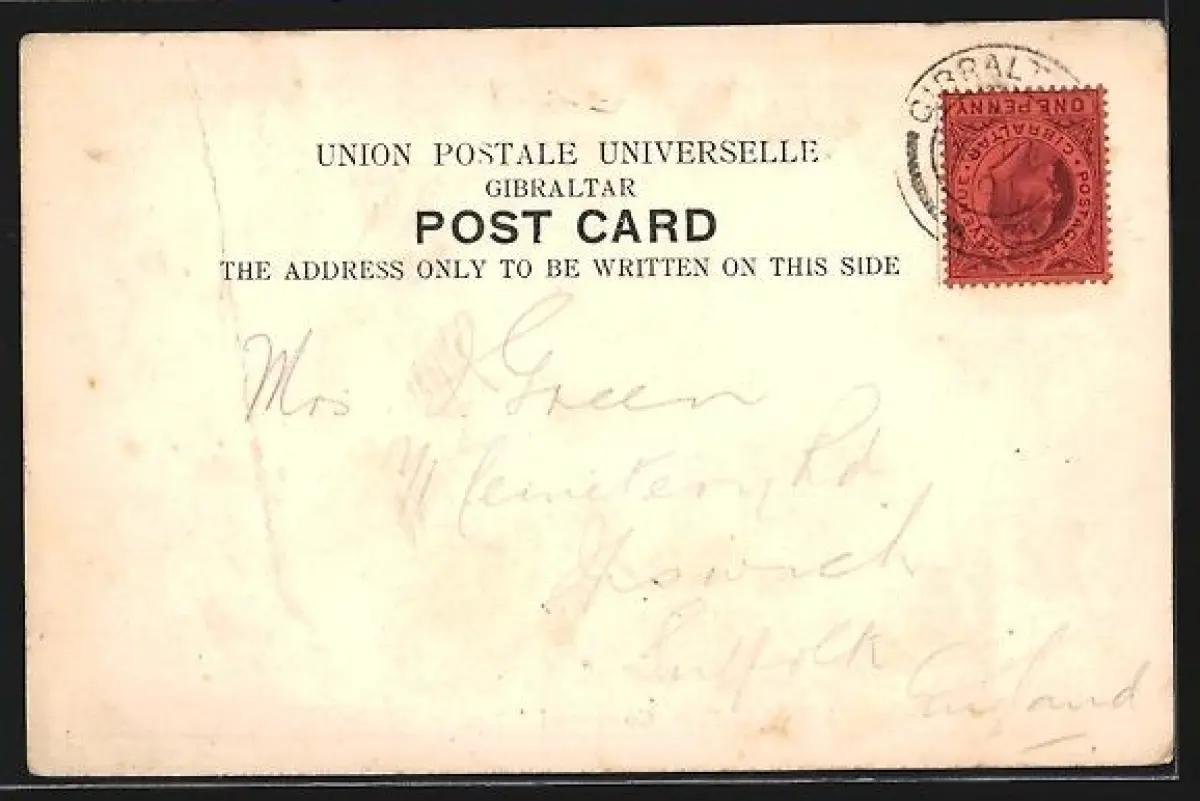 UNION POSTALE UNIVERSELLE
GIBRALTAR
POST CARD
THE ADDRESS ONLY TO BE WRITTEN ON THIS SIDE
GIBRALT
ONE PENNY
GIBRALTAR
POSTAGE
Mrs Green
Cemetery Rd
Ipswich
Suffolk
England